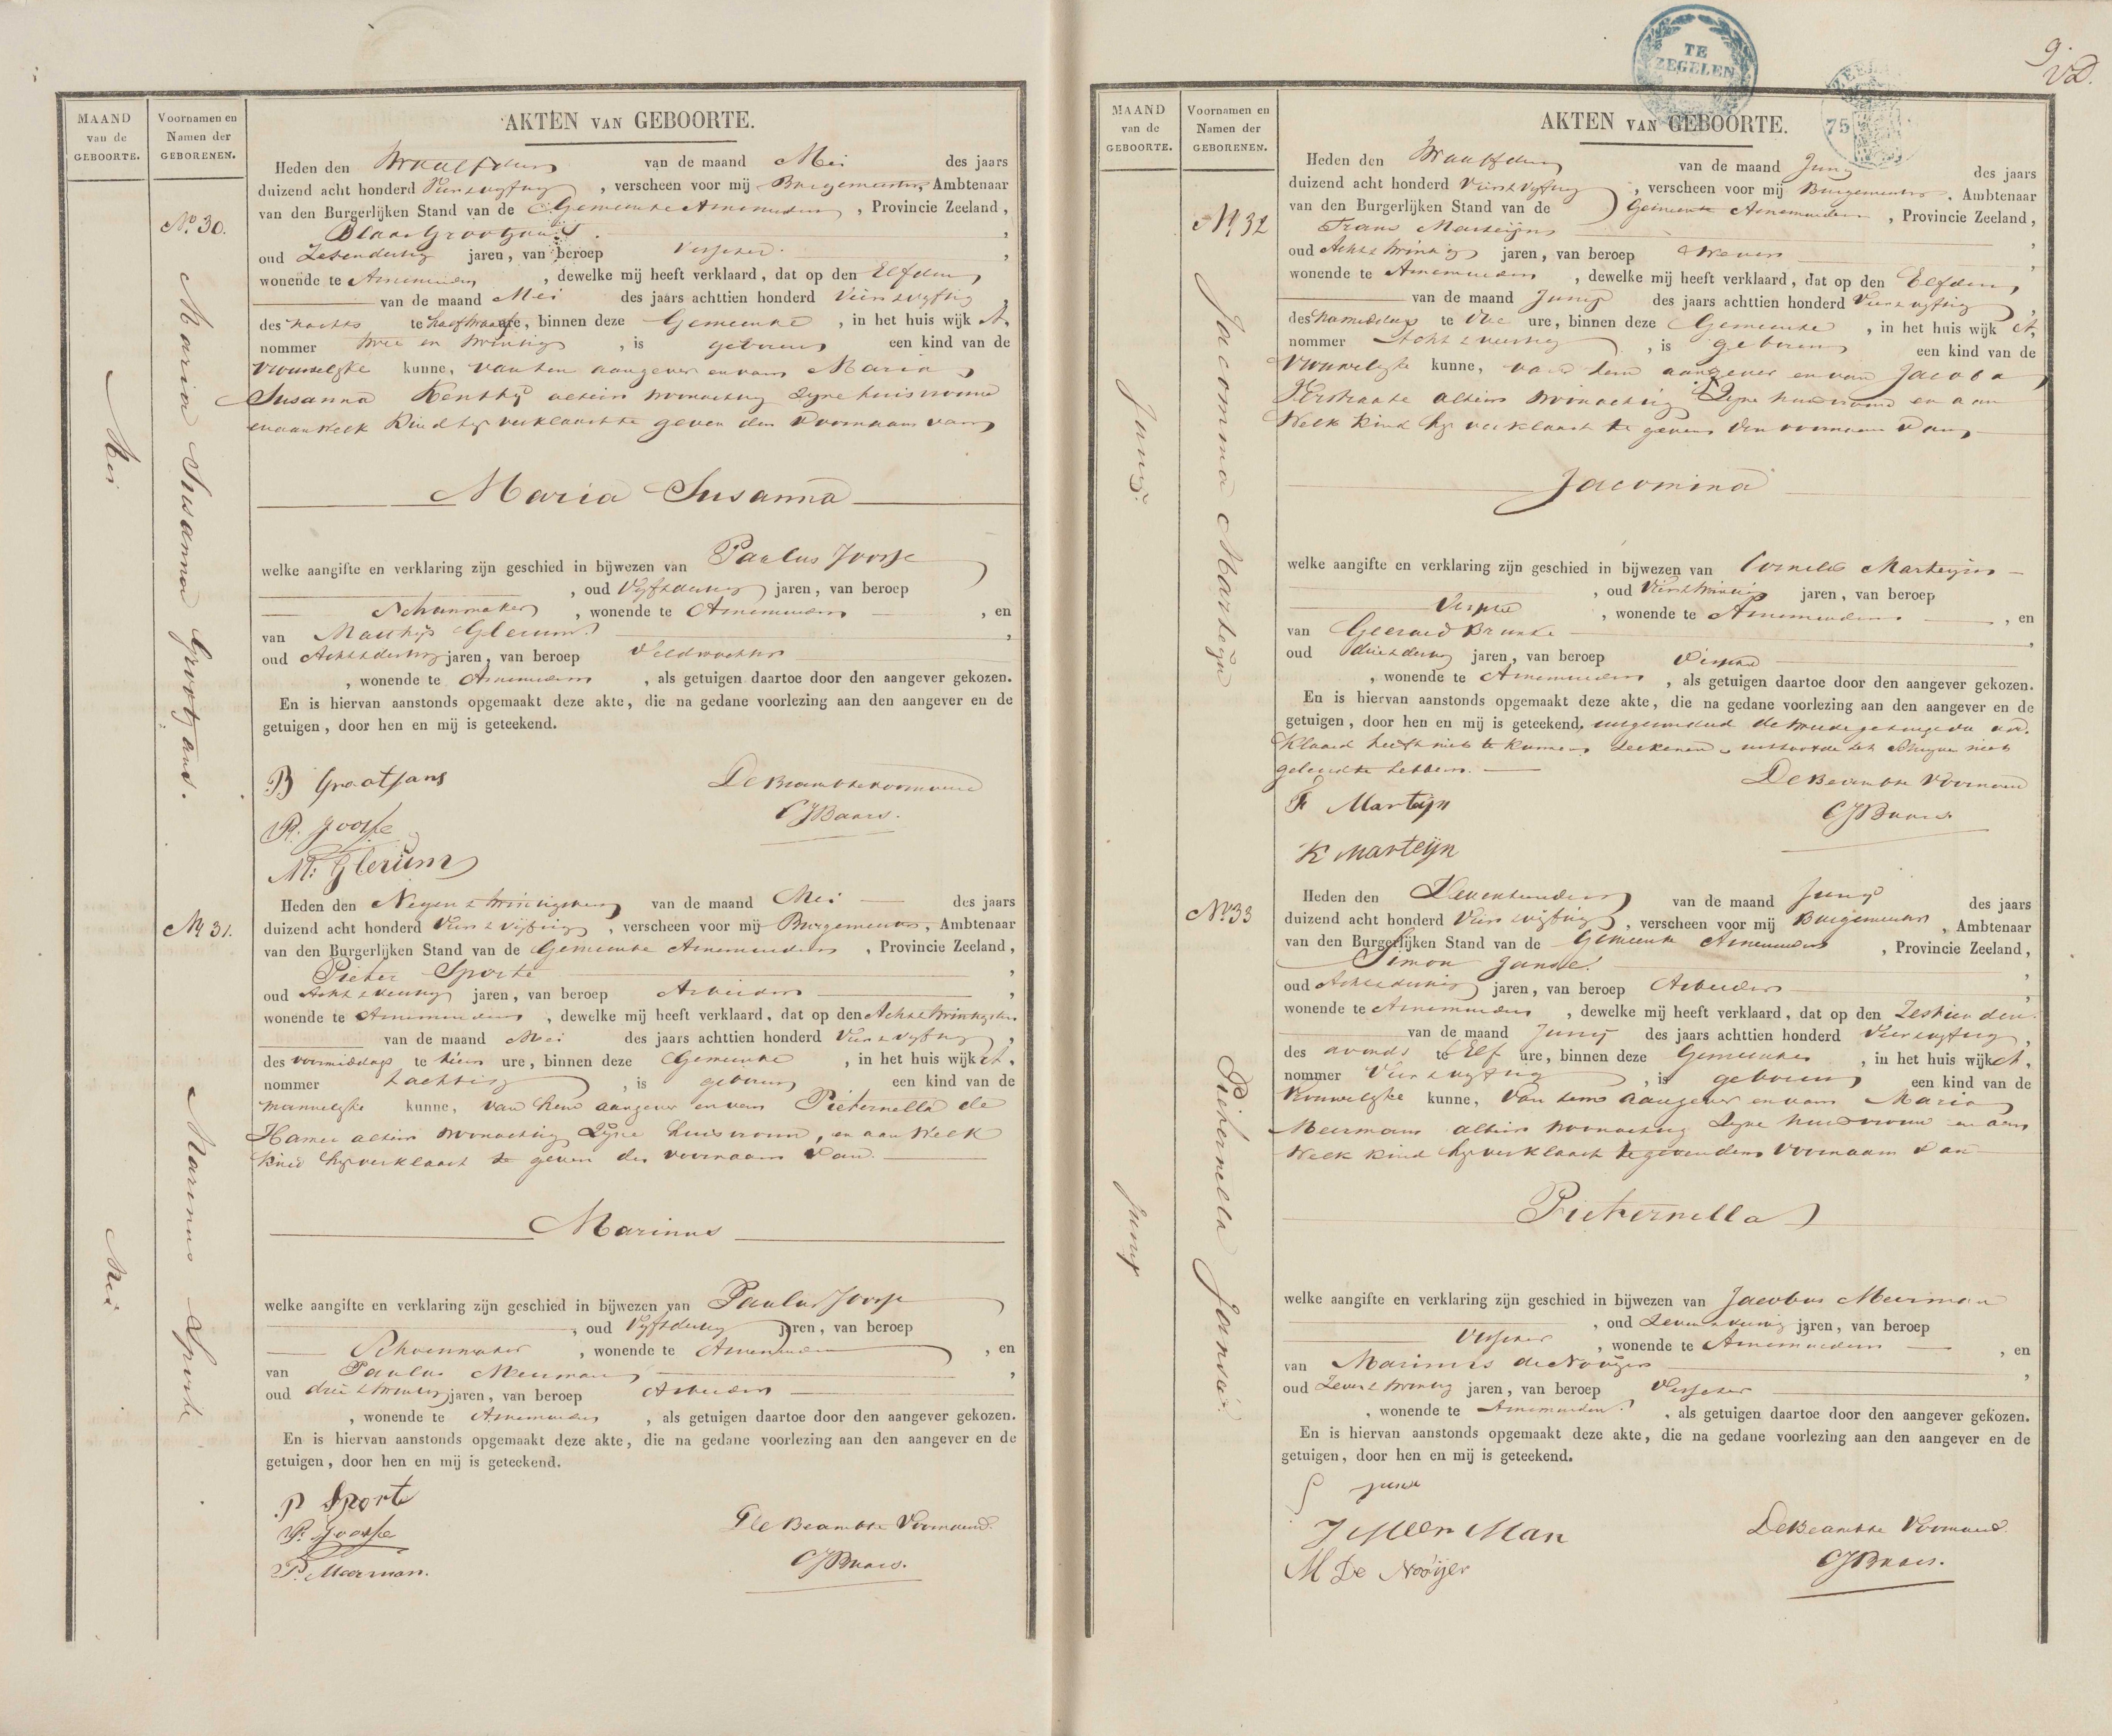 MAAND
van de
GEBOORTE.
Voornamen en
Namen der
GEBORENEN.
AKTEN VAN GEBOORTE.
Mei
No. 30.
Maria Susanna Grootjans.
Heden den Twaalfden van de maand Mei des jaars
duizend acht honderd Vier & vyftig, verscheen voor mij Burgemeester, Ambtenaar
van den Burgerlijken Stand van de Gemeente Arnemuiden, Provincie Zeeland,
Blaas Grootjans
oud Zesendertig jaren, van beroep Visscher
wonende te Arnemuiden, dewelke mij heeft verklaard, dat op den Elfden
van de maand Mei des jaars achttien honderd Vier & vyftig,
des nachts te half twaalf ure, binnen deze Gemeente, in het huis wijk A,
nommer twee en twintig, is geboren een kind van de
Vrouwelyke kunne, van hem aangever en van Maria
Susanna alhier woonachtig zyne huisvrouw
en aan welk kind hy verklaart te geven den Voornaam van
Maria Susanna
welke aangifte en verklaring zijn geschied in bijwezen van Paulus Joosse
, oud Vyf & dertig jaren, van beroep
Schoenmaker, wonende te Arnemuiden, en
van Matthys Glerum
oud Acht & dertig jaren, van beroep Veldwachter
, wonende te Arnemuiden, als getuigen daartoe door den aangever gekozen.
En is hiervan aanstonds opgemaakt deze akte, die na gedane voorlezing aan den aangever en de
getuigen, door hen en mij is geteekend.
B Grootjans
De Beambte voornoemd
CJBaars.
P. Joosse
M: Glerum
Mei
No 31.
Marinus Sporte
Heden den Negen & twintigsten van de maand Mei des jaars
duizend acht honderd Vier & vijftig, verscheen voor mij Burgemeester, Ambtenaar
van den Burgerlijken Stand van de Gemeente Arnemuiden, Provincie Zeeland,
Pieter Sporte
oud Acht & veertig jaren, van beroep Arbeider
wonende te Arnemuiden, dewelke mij heeft verklaard, dat op den Acht & twintigsten
van de maand Mei des jaars achttien honderd Vier & vyftig,
des voormiddags te tien ure, binnen deze Gemeente, in het huis wijk A,
nommer tachtig, is geboren een kind van de
mannelyke kunne, van hem aangever en van Pieternella de
Hamer alhier woonachtig Zyne huisvrouw, en aan Welk
kind hy verklaart te geven den voornaam van
Marinus
welke aangifte en verklaring zijn geschied in bijwezen van Paulus Joosse
, oud Vyf & dertig jaren, van beroep
Schoenmaker, wonende te Arnemuiden, en
van Paulus Meerman
oud drie & twintig jaren, van beroep Arbeider
, wonende te Arnemuiden, als getuigen daartoe door den aangever gekozen.
En is hiervan aanstonds opgemaakt deze akte, die na gedane voorlezing aan den aangever en de
getuigen, door hen en mij is geteekend.
P Sporte
P. Joosse
De Beambte Voornoemd.
CJBaars.
P. Meerman.
TE
ZEGELEN
75
9.
VD.
MAAND
van de
GEBOORTE.
Voornamen en
Namen der
GEBORENEN.
AKTEN VAN GEBOORTE.
Junij
No 32
Jacomina Marteijn
Heden den Twaalfden van de maand Junij des jaars
duizend acht honderd Vier & Vyftig, verscheen voor mij Burgemeester, Ambtenaar
van den Burgerlijken Stand van de Gemeente Arnemuiden, Provincie Zeeland,
Frans Marteijn
oud Acht & twintig jaren, van beroep Wever
wonende te Arnemuiden, dewelke mij heeft verklaard, dat op den Elfden
van de maand Junij des jaars achttien honderd Vier & vyftig,
des namiddags te drie ure, binnen deze Gemeente, in het huis wijk A,
nommer Acht & veertig, is geboren een kind van de
Vrouwelyke kunne, van hem aangever en van Jacoba
Verstraate alhier woonachtig Zyne huisvrouw en aan
Welk kind hy verklaart te geven den voornaam van
Jacomina
welke aangifte en verklaring zijn geschied in bijwezen van Cornelis Marteijn
, oud Vier & twintig jaren, van beroep
wonende te Arnemuiden, en
van Geerard Brunke
oud drie & dertig jaren, van beroep
, wonende te Arnemuiden, als getuigen daartoe door den aangever gekozen.
En is hiervan aanstonds opgemaakt deze akte, die na gedane voorlezing aan den aangever en de
getuigen, door hen en mij is geteekend, uitgezonderd de tweede getuige die ver-
klaard heeft niet te kunnen teekenen, uit oorzake het schryven niet
geleerd te hebben.
De Beambte Voornoemd
CJBaars
F Marteijn
K Marteijn
Junij
No 33
Pieternella Jansse.
Heden den Zeventienden van de maand Junij des jaars
duizend acht honderd Vier & vijftig, verscheen voor mij Burgemeester, Ambtenaar
van den Burgerlijken Stand van de Gemeente Arnemuiden, Provincie Zeeland,
Simon Jansse.
oud Acht & dertig jaren, van beroep Arbeider
wonende te Arnemuiden, dewelke mij heeft verklaard, dat op den Zestienden
van de maand Junij des jaars achttien honderd Vier & vyftig,
des avonds te Elf ure, binnen deze Gemeente, in het huis wijk A,
nommer Vier & vyftig, is geboren een kind van de
Vrouwelyke kunne, Van hem aangever en van Maria
Meerman alhier woonachtig Zyne huisvrouw en aan
Welk kind hy verklaart te geven den Voornaam van
Pieternella
welke aangifte en verklaring zijn geschied in bijwezen van Jacobus Meerman
, oud Zeven & veertig jaren, van beroep
Visscher, wonende te Arnemuiden, en
van Marinus de Nooijer
oud Zeven & twintig jaren, van beroep Visscher
, wonende te Arnemuiden, als getuigen daartoe door den aangever gekozen.
En is hiervan aanstonds opgemaakt deze akte, die na gedane voorlezing aan den aangever en de
getuigen, door hen en mij is geteekend.
S Janse
J Meerman
De Beambte Voornoemd.
M De Nooijer
CJBaars.